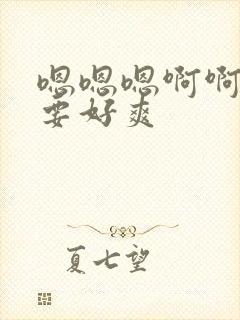 嗯嗯嗯啊啊
要好爽
夏七望